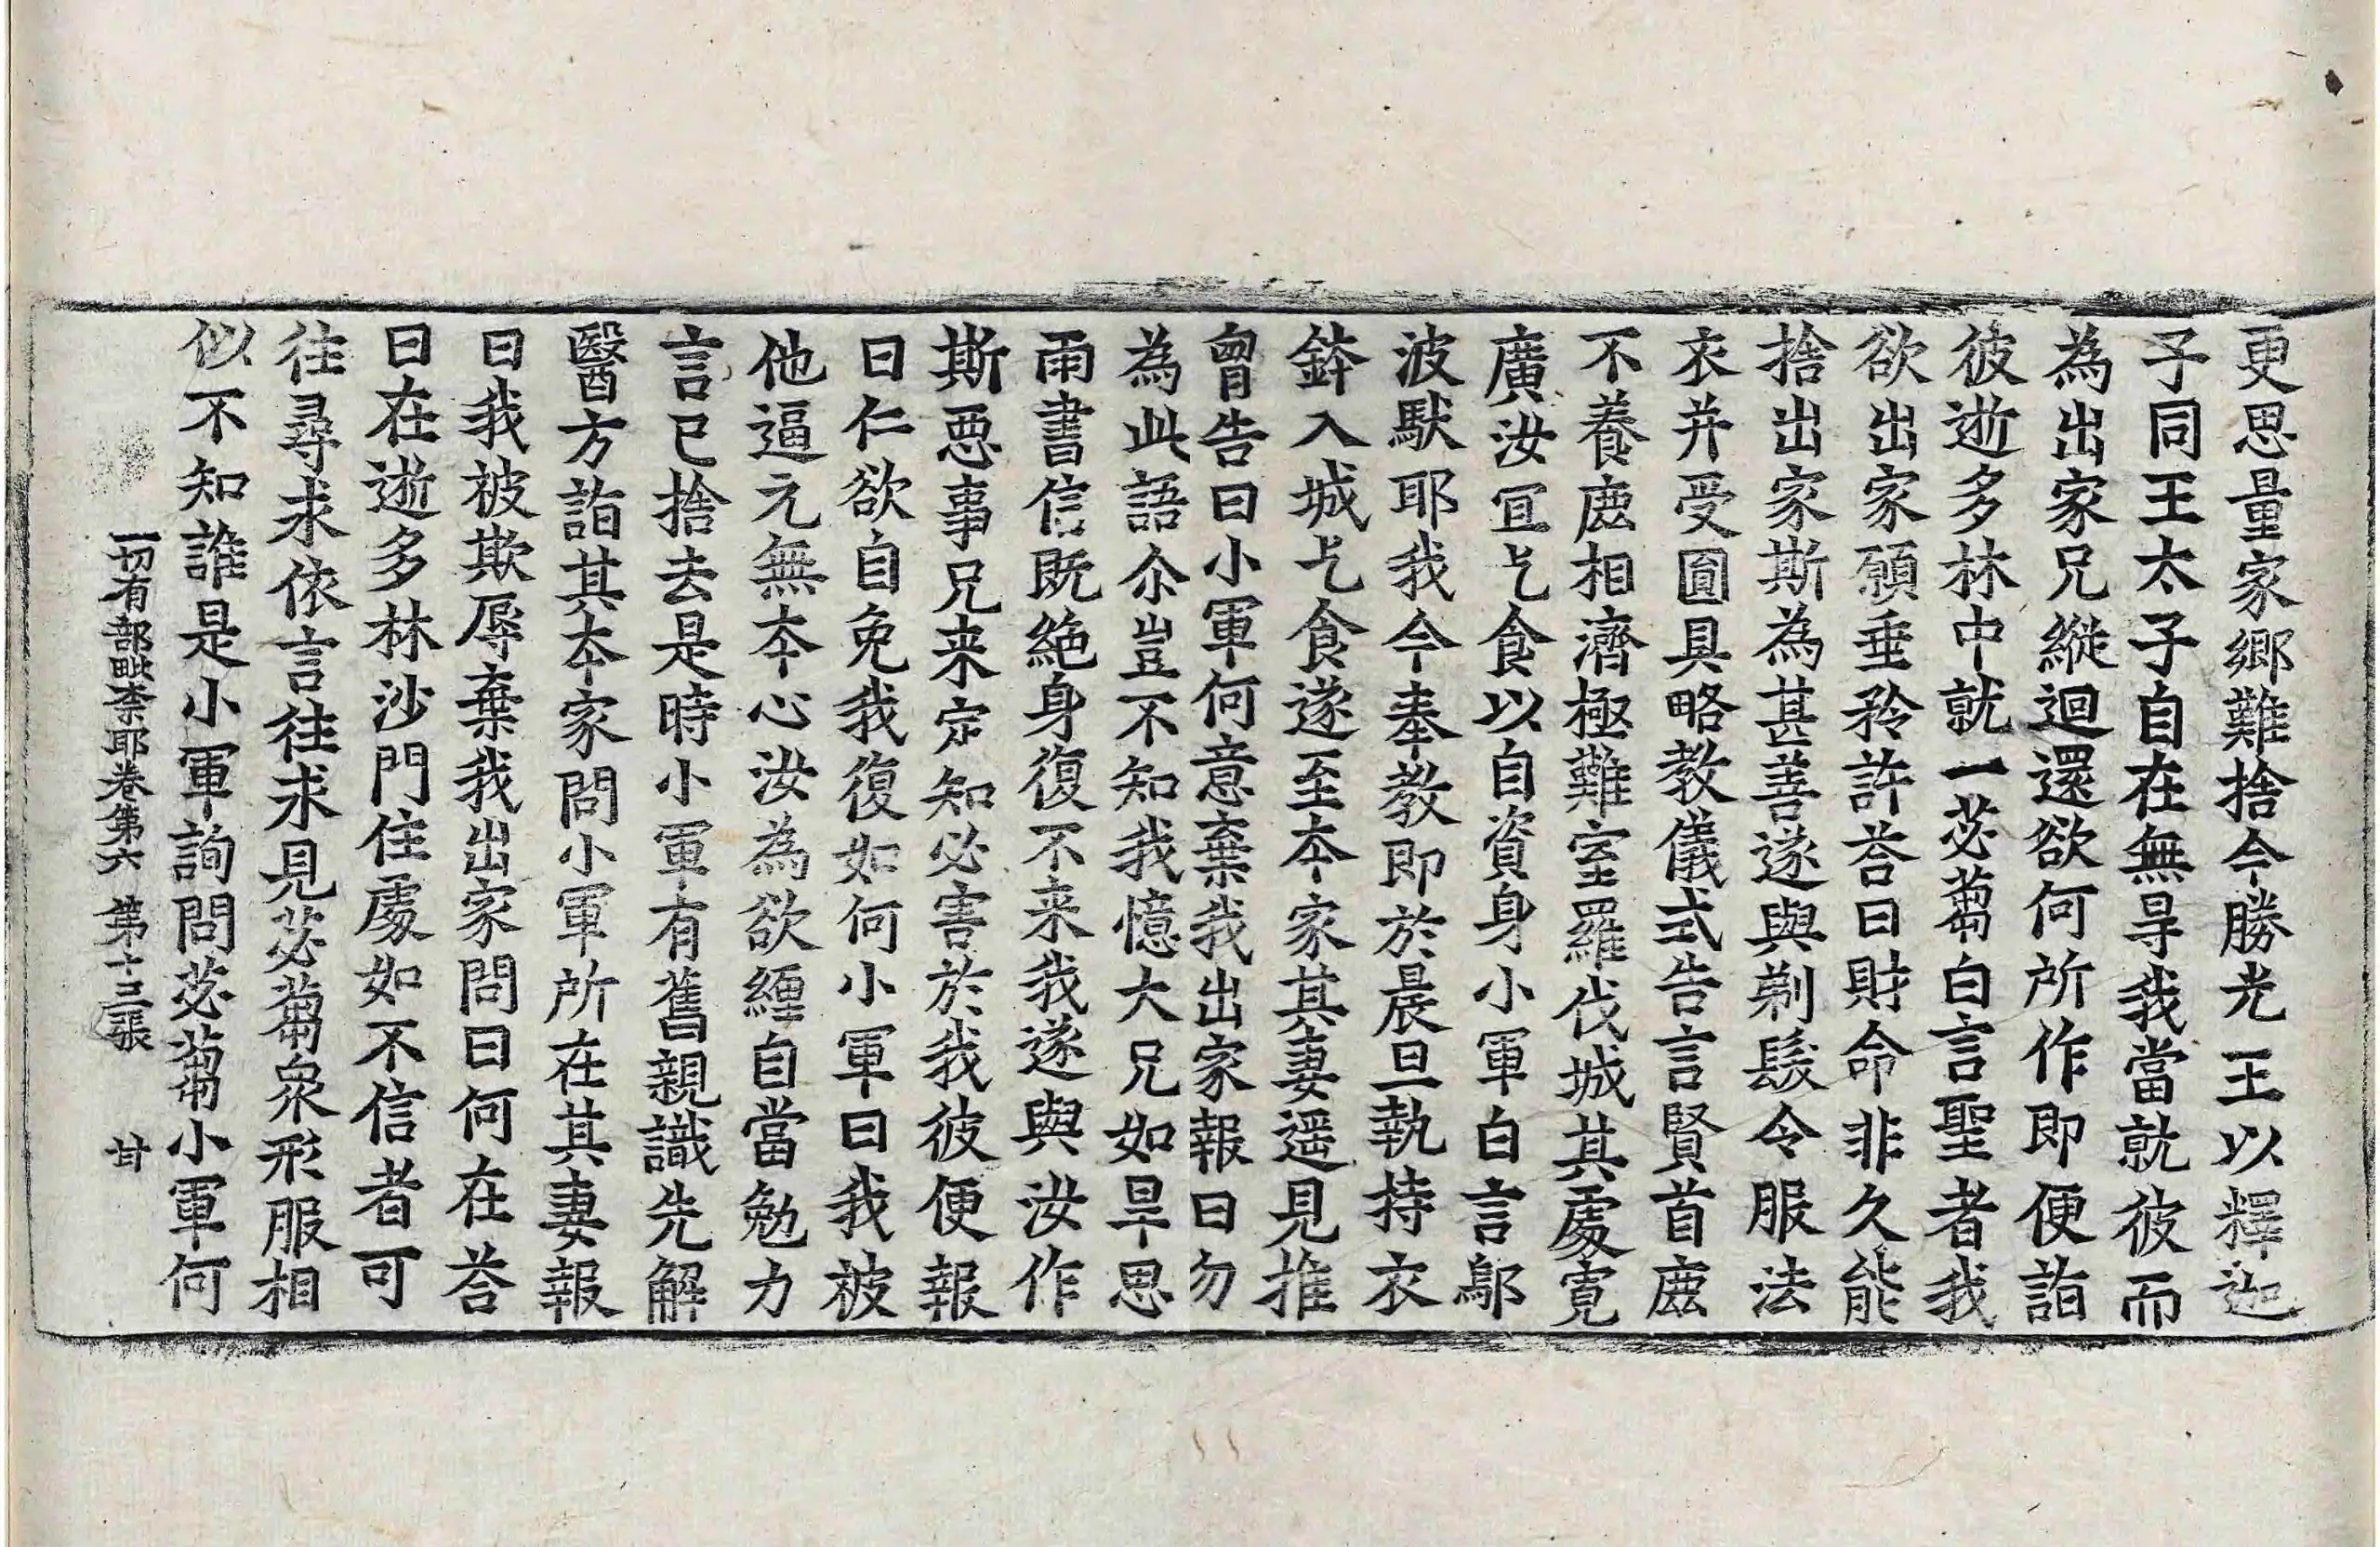 更思量家鄉難捨今勝光王以釋迦
子同王太子自在無㝵我當就彼而
為出家兄縱迴還欲何所作即便詣
彼逝多林中就一苾蒭白言聖者我
欲出家願垂矜許荅曰財命非久能
捨出家斯為甚善遂與剃髮令服法
衣并受圓具略教儀式告言賢首鹿
不養鹿相濟極難室羅伐城其處寬
廣汝宜乞食以自資身小軍白言鄔
波馱耶我今奉教即於晨旦執持衣
鉢入城乞食遂至本家其妻遥見推
胷告曰小軍何意棄我出家報曰勿
為此語尒豈不知我憶大兄如旱思
雨書信既絶身復不来我遂與汝作
斯惡事兄来定知必害於我彼便報
曰仁欲自免我復如何小軍曰我被
他逼元無本心汝為欲纏自當勉力
言已捨去是時小軍有舊親識先解
醫方詣其本家問小軍所在其妻報
曰我被欺辱棄我出家問曰何在荅
曰在逝多林沙門住處如不信者可
往尋求依言往求見苾蒭衆形服相
似不知誰是小軍詢問苾蒭小軍何
一切有部毗柰耶卷第六 第十三張 甘